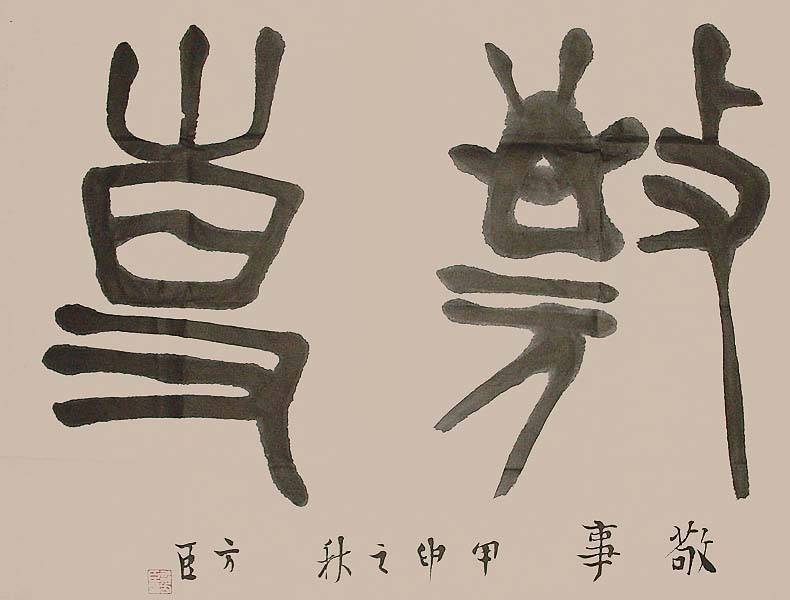 敬事
敬事 甲申之秋 方臣